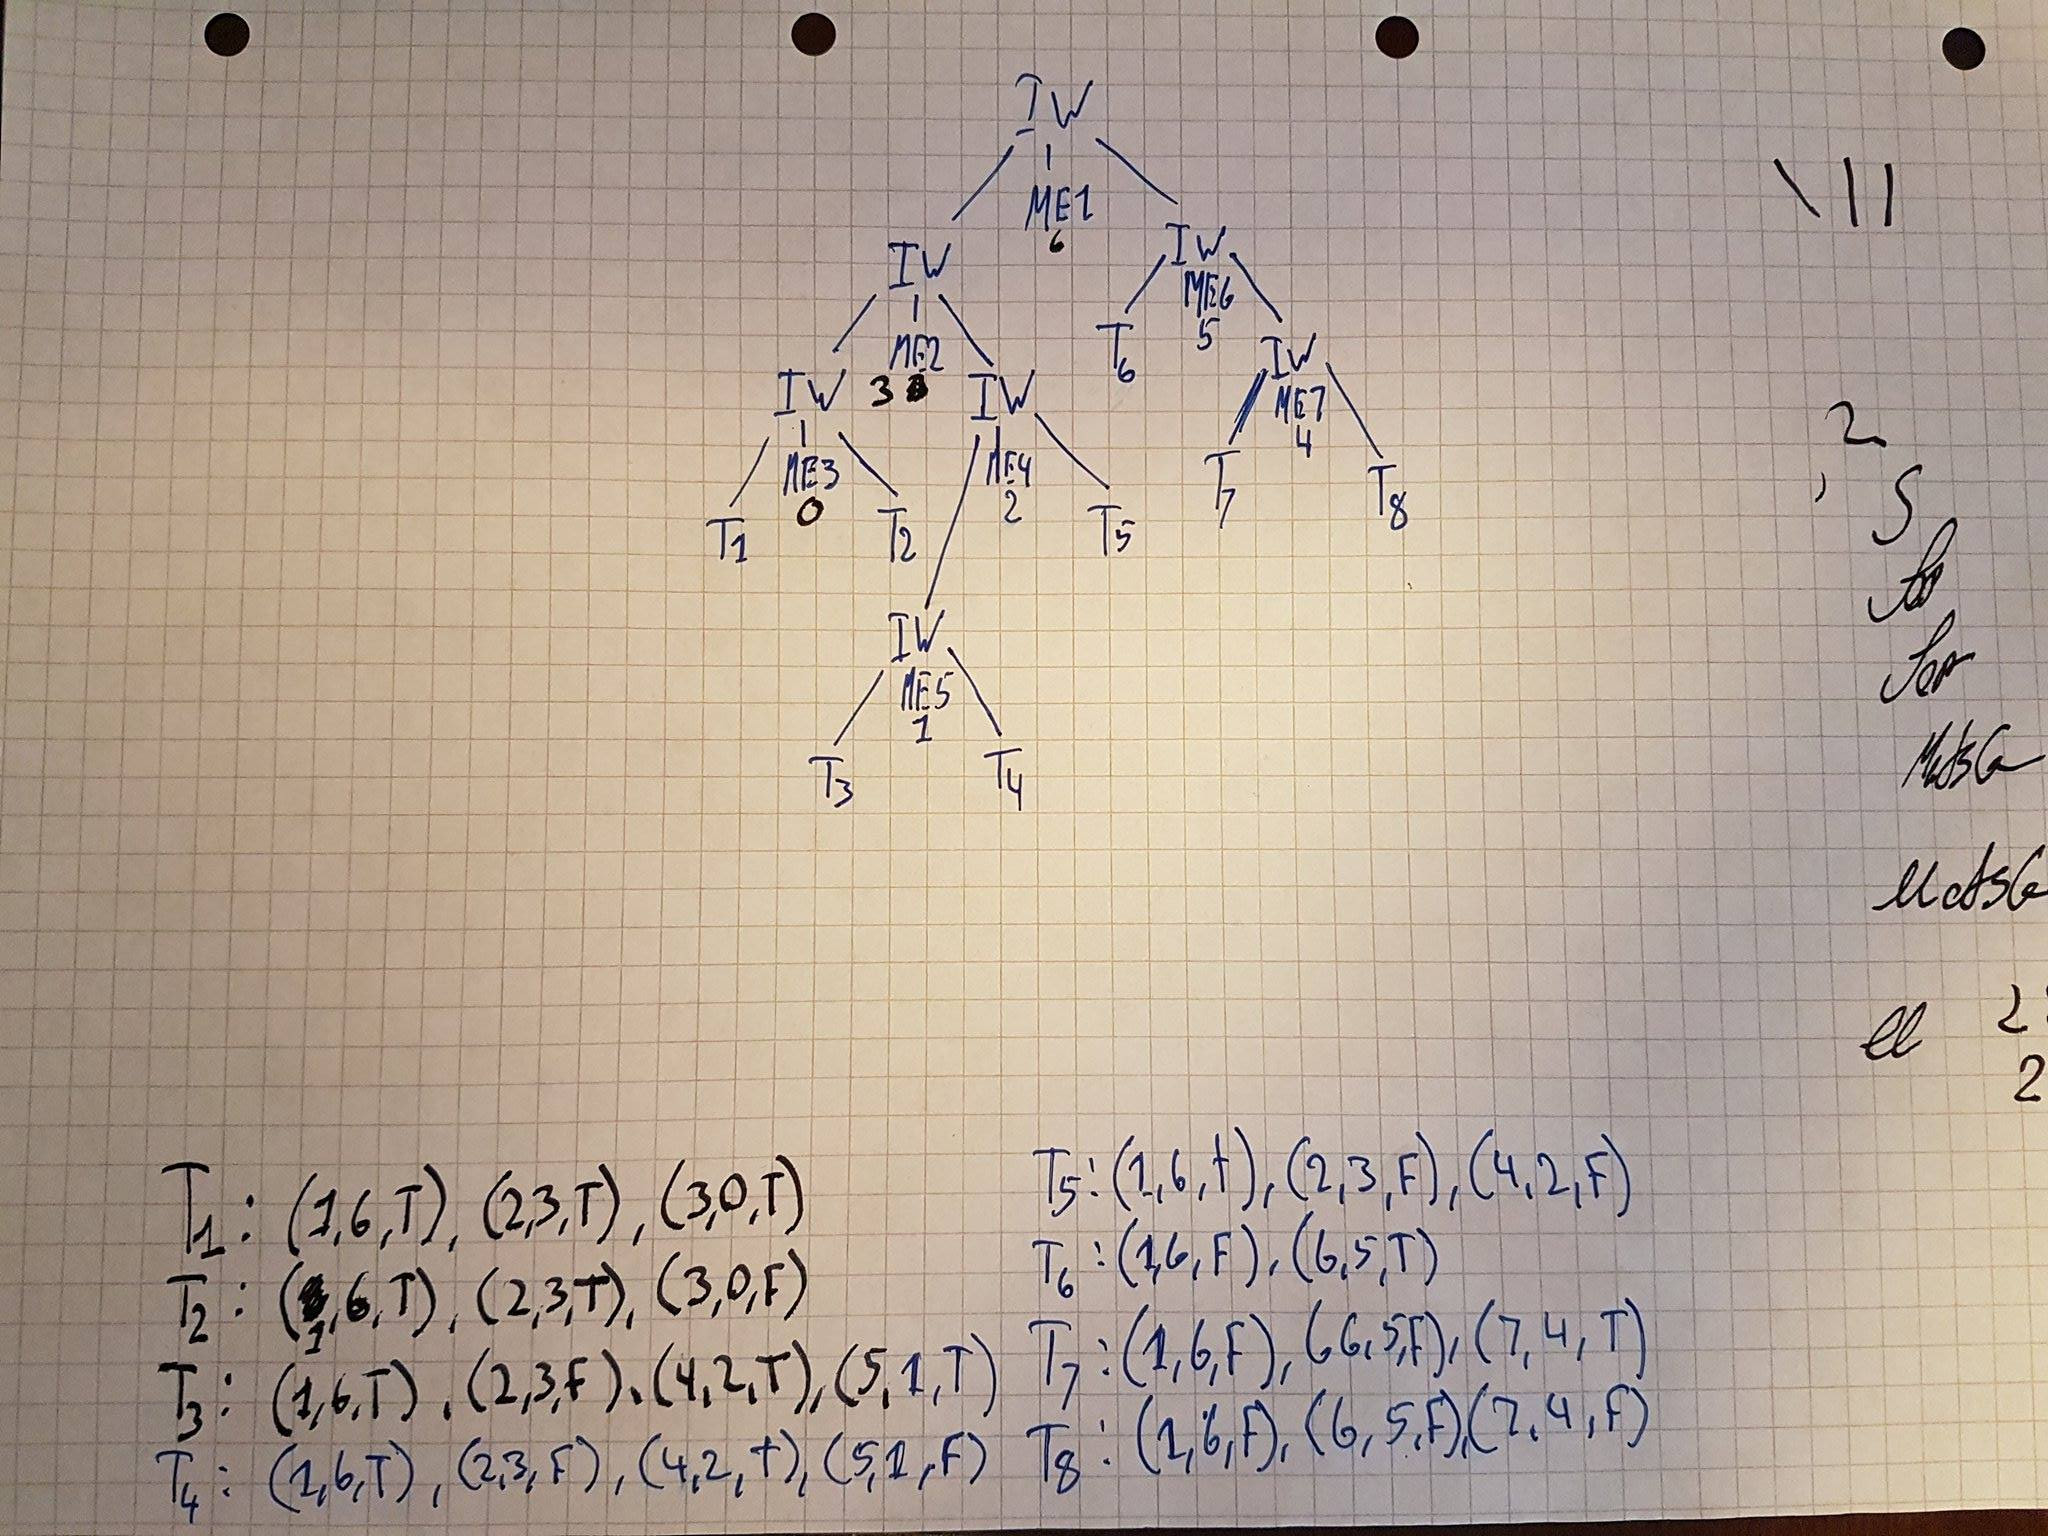 IW
ME1
6
IW
IW
ME6
5
ME2
3
T6
IW
ME7
4
IW
IW
ME3
0
ME4
2
T7
T8
T1
T2
T5
IW
ME5
1
T3
T4
2
S
ll
2
T1: (1,6,T), (2,3,T), (3,0,T)
T2: (1,6,T), (2,3,T), (3,0,F)
T3: (1,6,T), (2,3,F), (4,2,T), (5,1,T)
T4: (1,6,T), (2,3,F), (4,2,t), (5,1,F)
T5: (1,6,t), (2,3,F), (4,2,F)
T6: (1,6,F), (6,5,T)
T7: (1,6,F), (6 6,5,F), (7,4,T)
T8: (1,6,F), (6,5,F), (7,4,F)